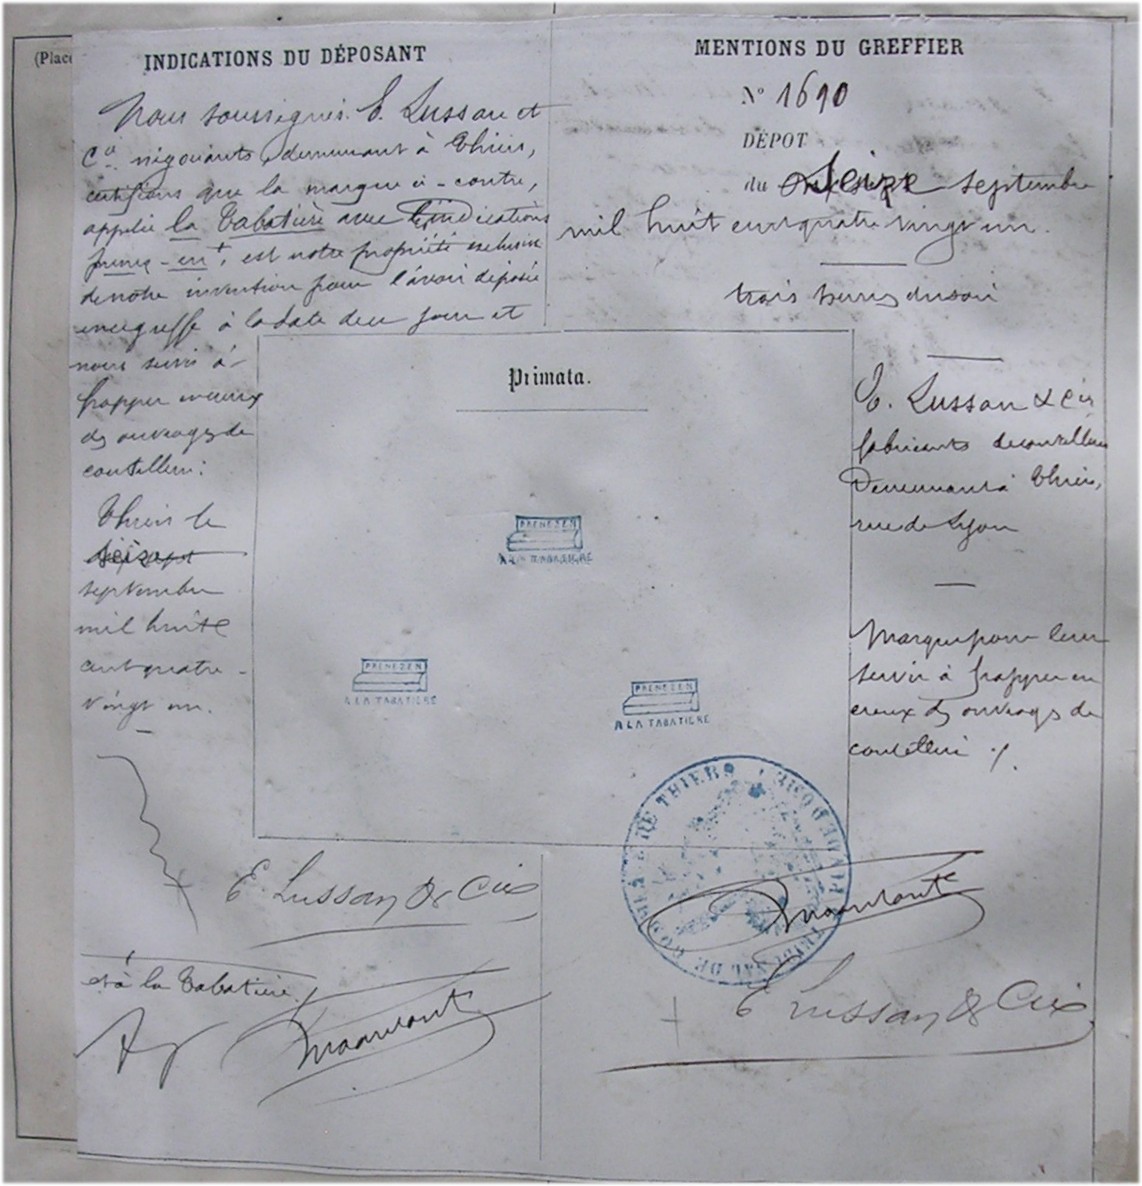 (Place
INDICATIONS DU DÉPOSANT
Nous soussignés. E. Lussan et
Cie négociants demeurant à Thiers,
certifions que la marque ci-contre,
appelée la Tabatière avec indications
prenez-en +, est notre propriété exclusive
de notre invention pour l'avoir déposée
au greffe à la date de ce jour et
nous servir à
frapper en creux
des ouvrages de
coutellerie.
Thiers le
seize
septembre
mil huit
cent quatre
vingt un.
E. Lussan & Cie
et à la Tabatière
MENTIONS DU GREFFIER
N° 1690
DÉPOT
du seize septembre
mil huit cent quatre vingt un.
trois heures du soir
Primata.
PRENEZEN
A LA TABATIERE
PRENEZEN
A LA TABATIERE
PRENEZEN
A LA TABATIERE
E. Lussan & Cie
fabricants de coutellerie
Demeurant à Thiers,
rue de Lyon
Marque pour leur
servir à frapper en
creux des ouvrages de
coutellerie ./.
TRIBUNAL DE COMMERCE DE THIERS
E Lussan & Cie